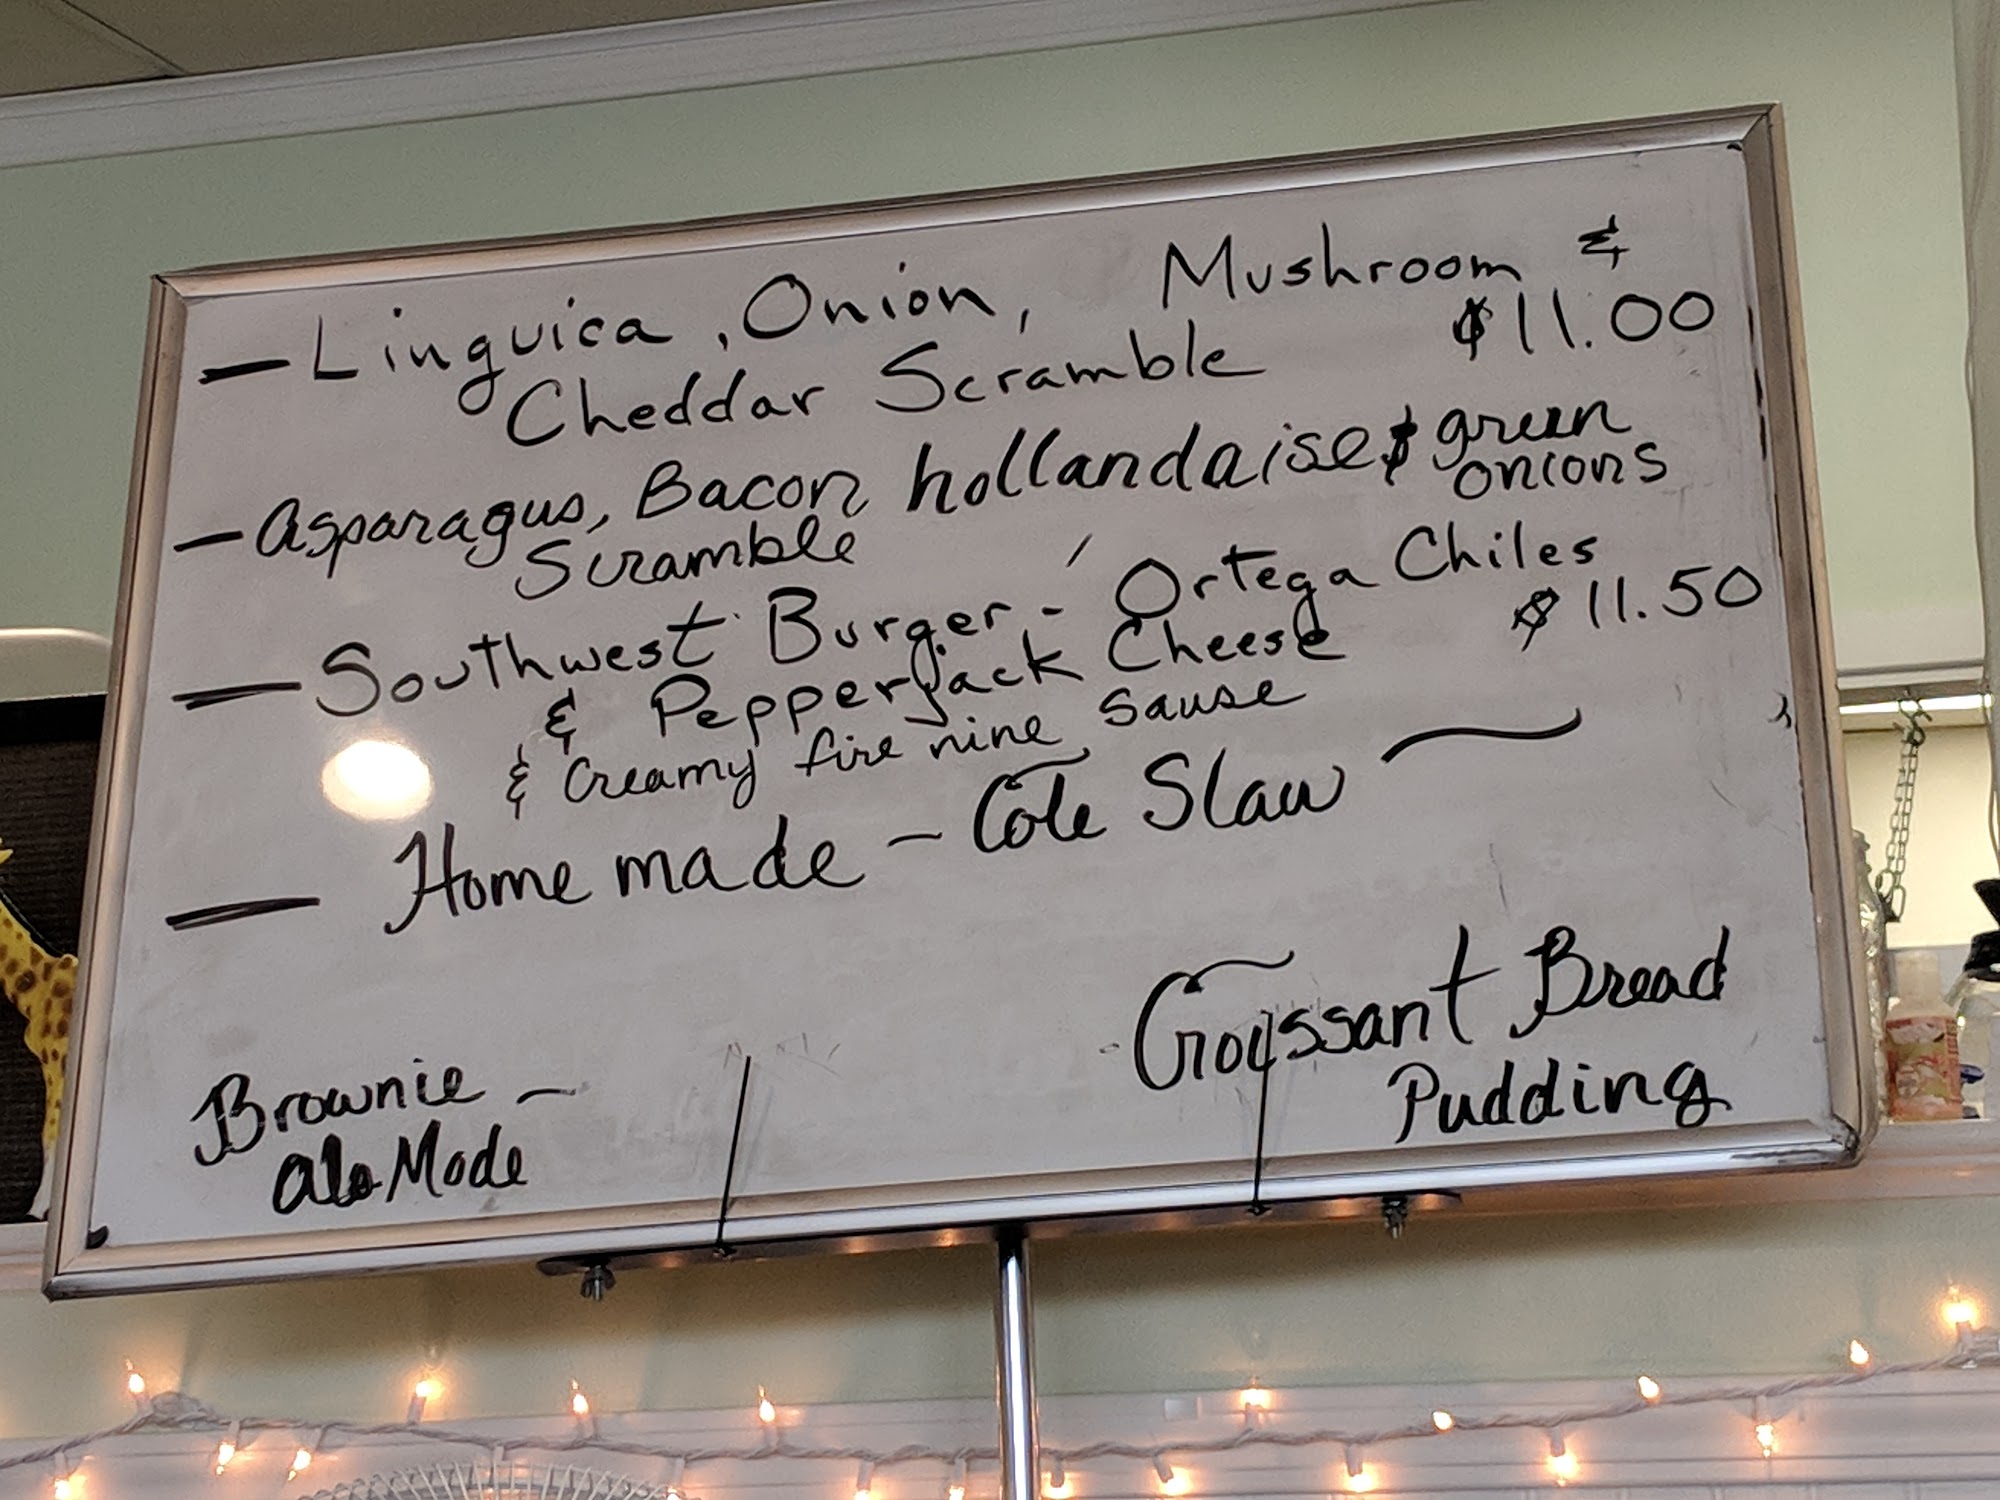 — Linguica, Onion, Mushroom &
Cheddar Scramble $11.00
— Asparagus, Bacon, hollandaise & green
Scramble onions
— Southwest Burger - Ortega Chiles
& Pepperjack Cheese $11.50
& Creamy fire nine sause
— Home made - Cole Slaw
Croissant Bread
Pudding
Brownie -
ala Mode